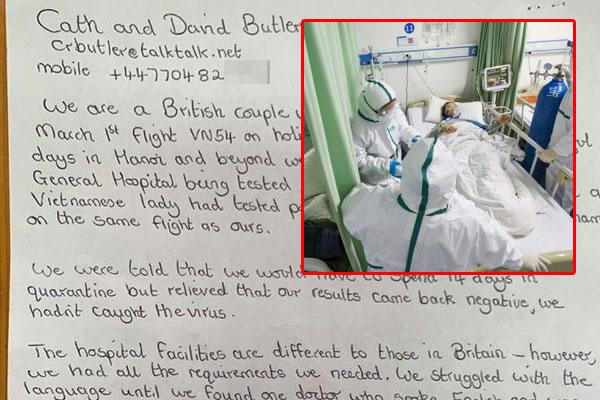 Cath and David Butler
crbutler@talktalk.net
mobile +44770482
We are a British couple
March 1st flight VN54 on holi
days in Hanoi and beyond w
General Hospital being tested
Vietnamese lady had tested p
on the same flight as ours.
We were told that we would have to spend 14 days in
quarantine but relieved that our results came back negative, we
hadn't caught the virus.
The hospital facilities are different to those in Britain – however,
we had all the requirements we needed. We struggled with the
language until we found one doctor who spoke English and